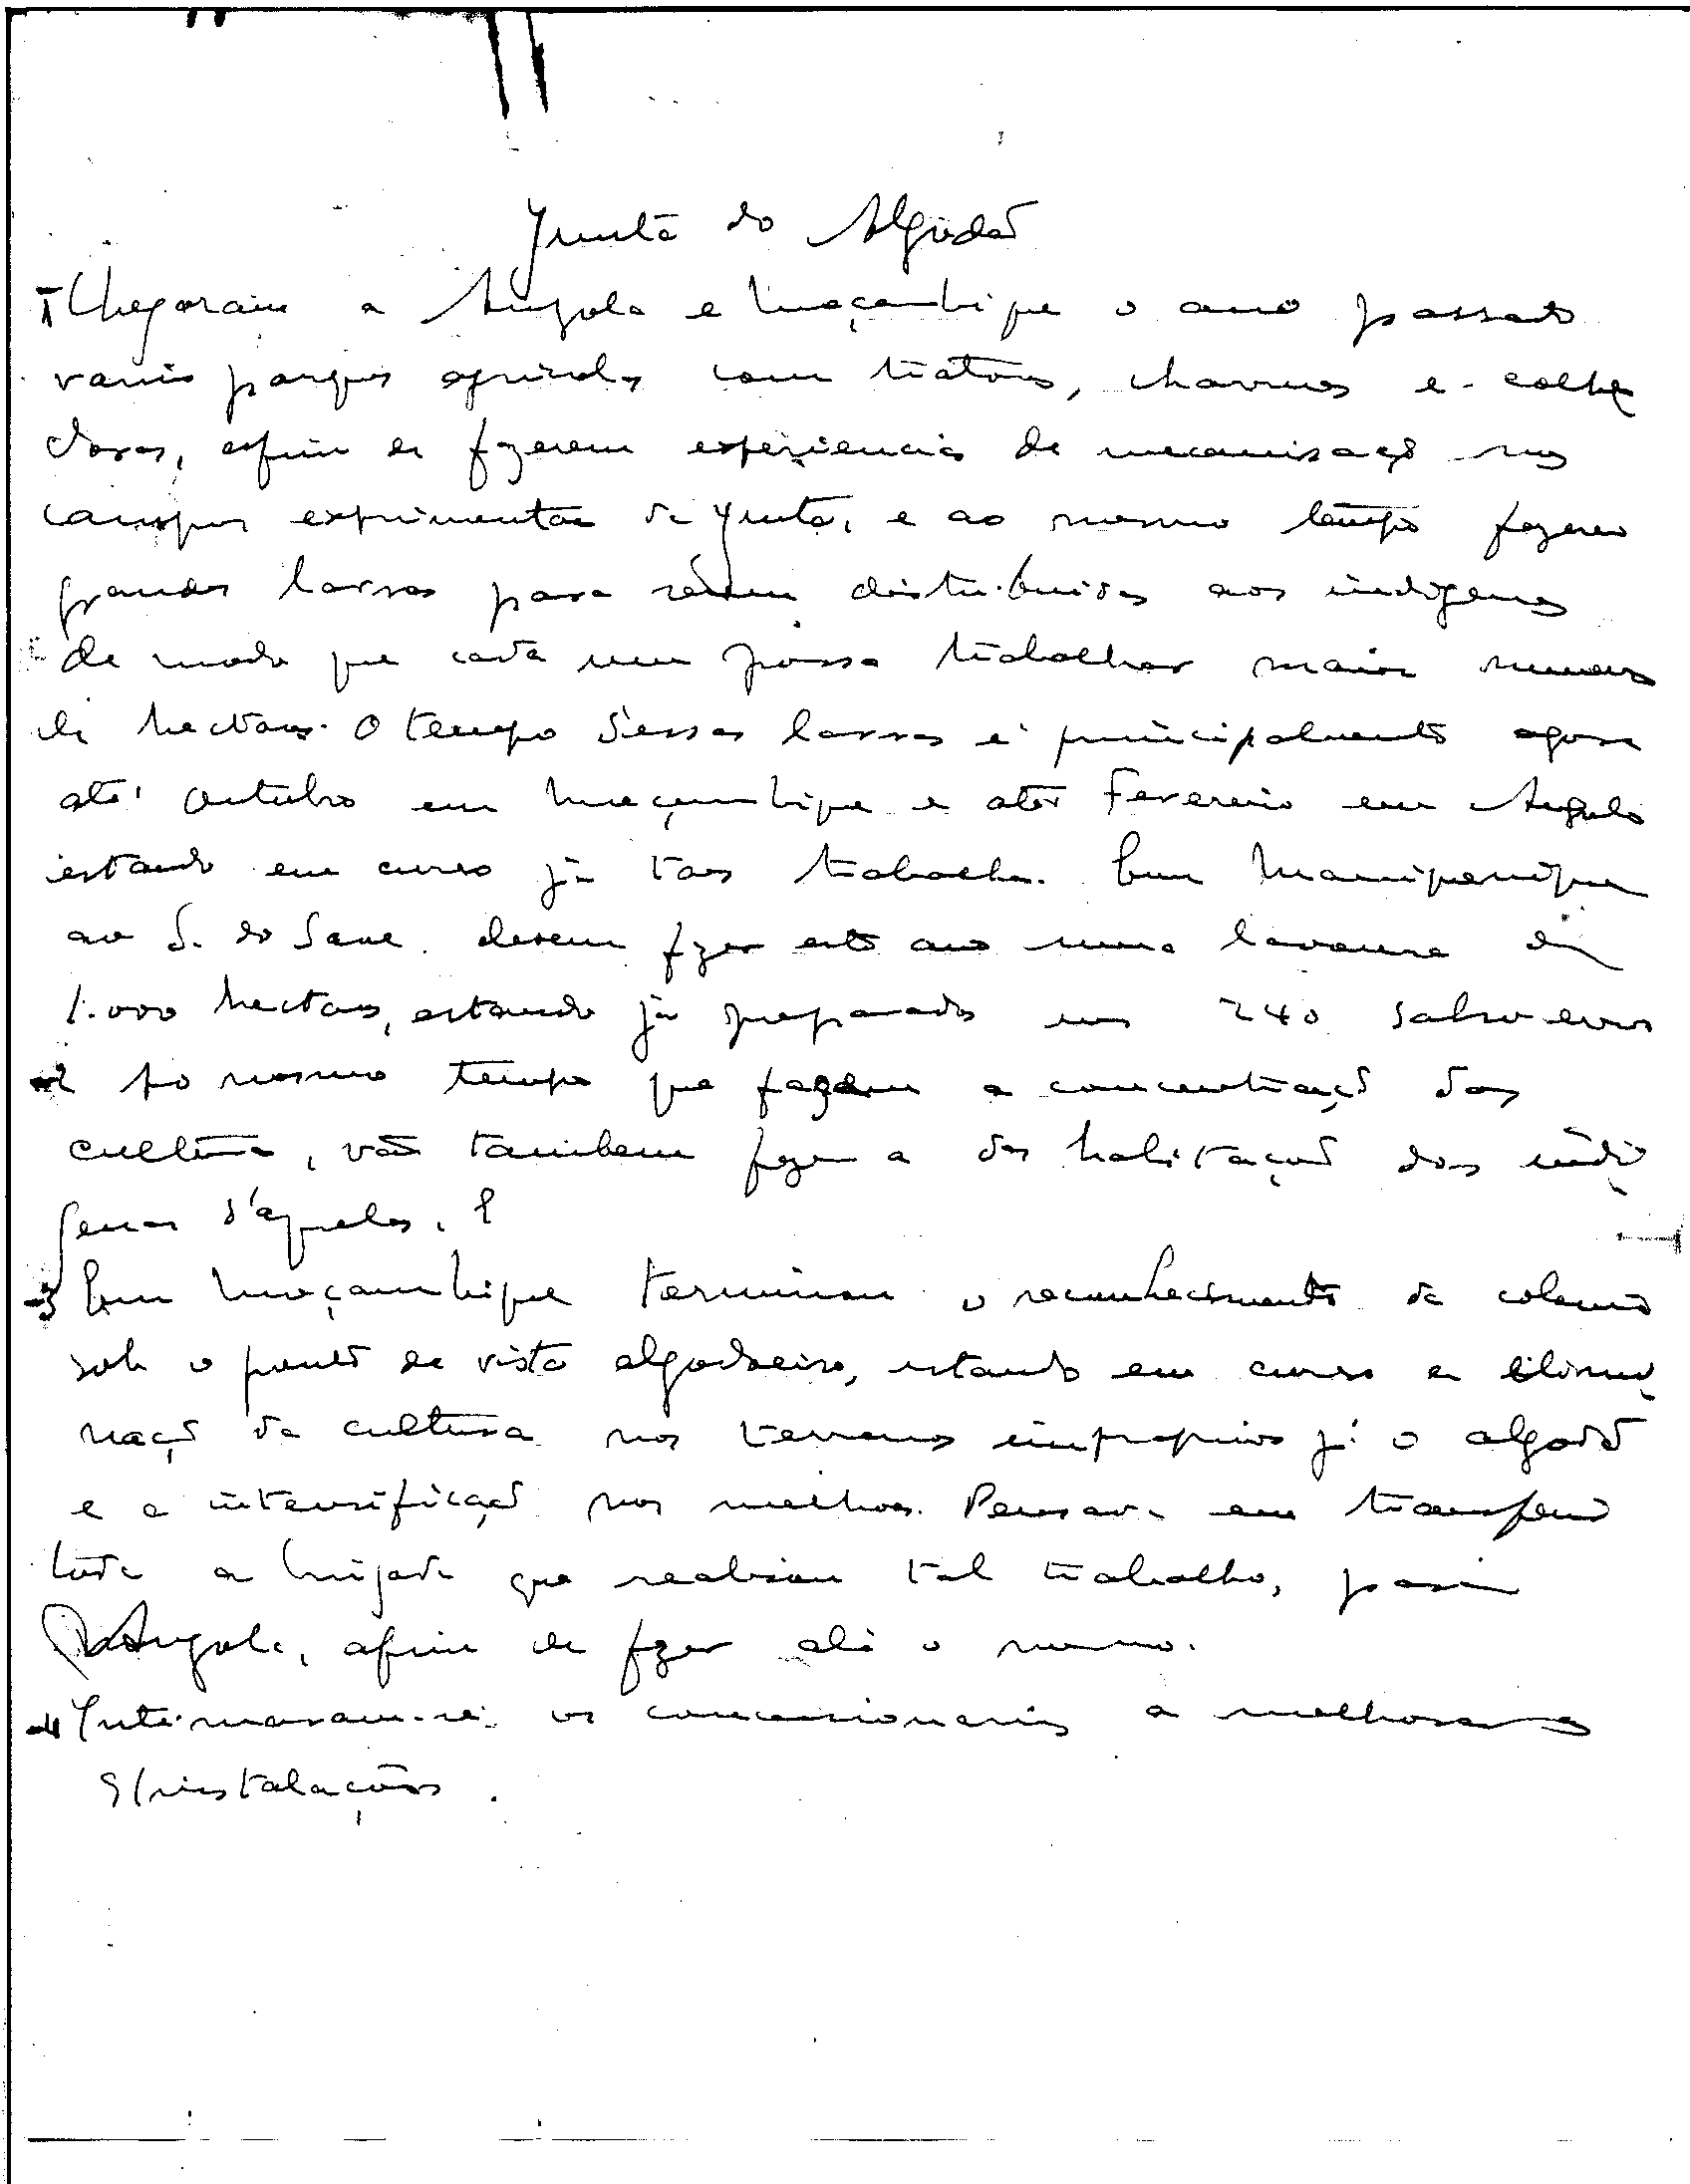 Junta do Algodão
1 Chegaram a Angola e Moçambique o ano passado
varios parques agricolas com tratores, charruas e colhe
doras, afim de fazerem experiencias de mecanisação nos
campos experimentaes da Junta, e ao mesmo tempo fazerem
grandes lavras para serem distribuidas aos indigenas
de modo que cada um possa trabalhar maior numero
de hectares. O tempo d'essas lavras é principalmente agora
até Outubro em Moçambique e até Fevereiro em Angola
estando em curso já taes trabalhos. Em
ao S. do Save devem fazer este ano uma lavoura de
1.000 hectares, estando já preparados uns 240 salvo erro
2 Ao mesmo tempo que fazem a concentração das
culturas, vão tambem fazer a das habitações dos indi
genas d'aquelas.
3 Em Moçambique terminou o reconhecimento da colonia
sob o ponto de vista algodoeiro, estando em curso a elimi
nação da cultura nos terrenos improprios pª o algodão
e a intensificação nos melhores. Pensava em transferir
toda a brigada que realisou tal trabalho, para
Angola, afim de fazer ali o mesmo.
4 Intimaram-se os concessionarios a melhorar as
s/instalações.